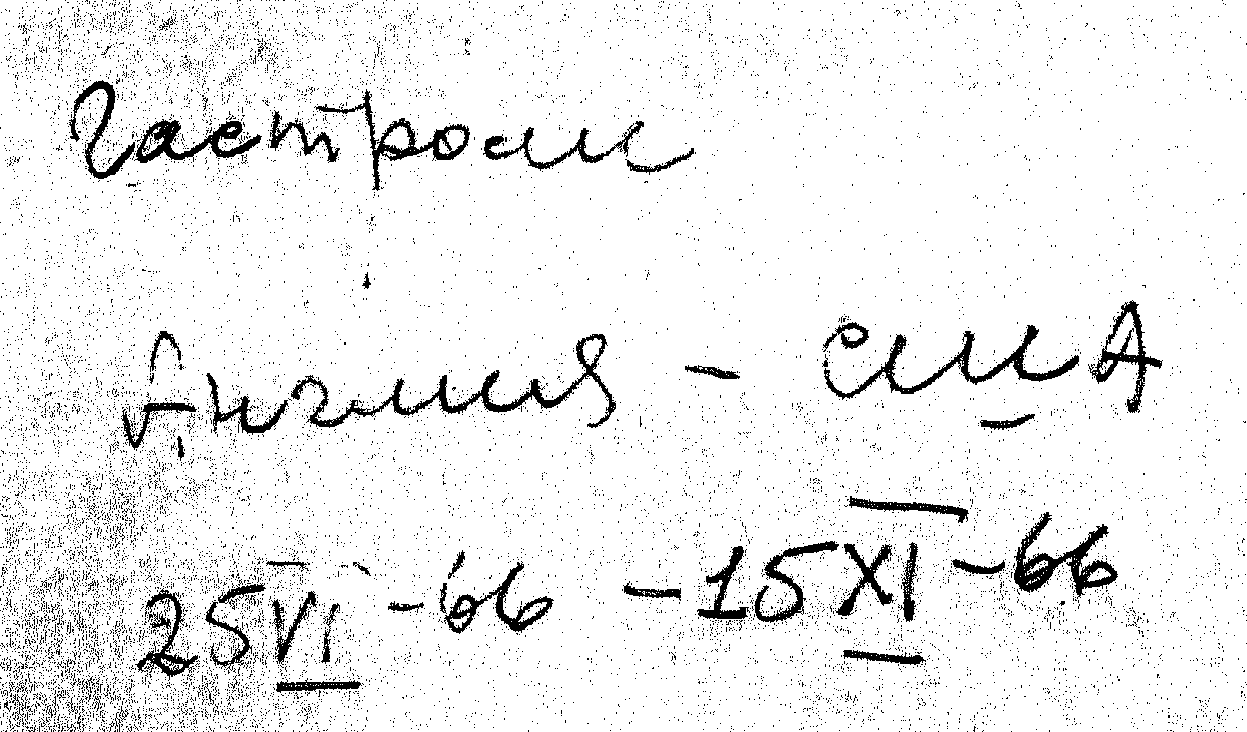 Гастроли
Англия – США
25 VI – 66 – 15 XI – 66